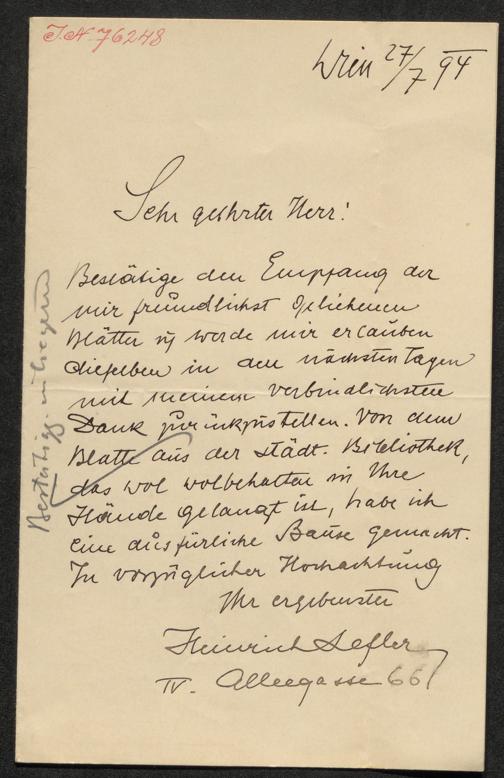 I.N. 76248
Wien 27/7 94
Sehr geehrter Herr!
Bestätige den Empfang der
mir freundlichst geliehenen
Blätter u werde mir erlauben
dieselben in den nächsten Tagen
mit meinem verbindlichsten
Dank zurückzustellen. Von dem
Blatte aus der städt. Bibliothek,
das wol wolbehalten in Ihre
Hände gelangt ist, habe ich
eine ausfürliche Bause gemacht.
In vorzüglicher Hochachtung
Ihr ergebenster
Heinrich Lefler
IV. Alleegasse 66
Bestätigg.